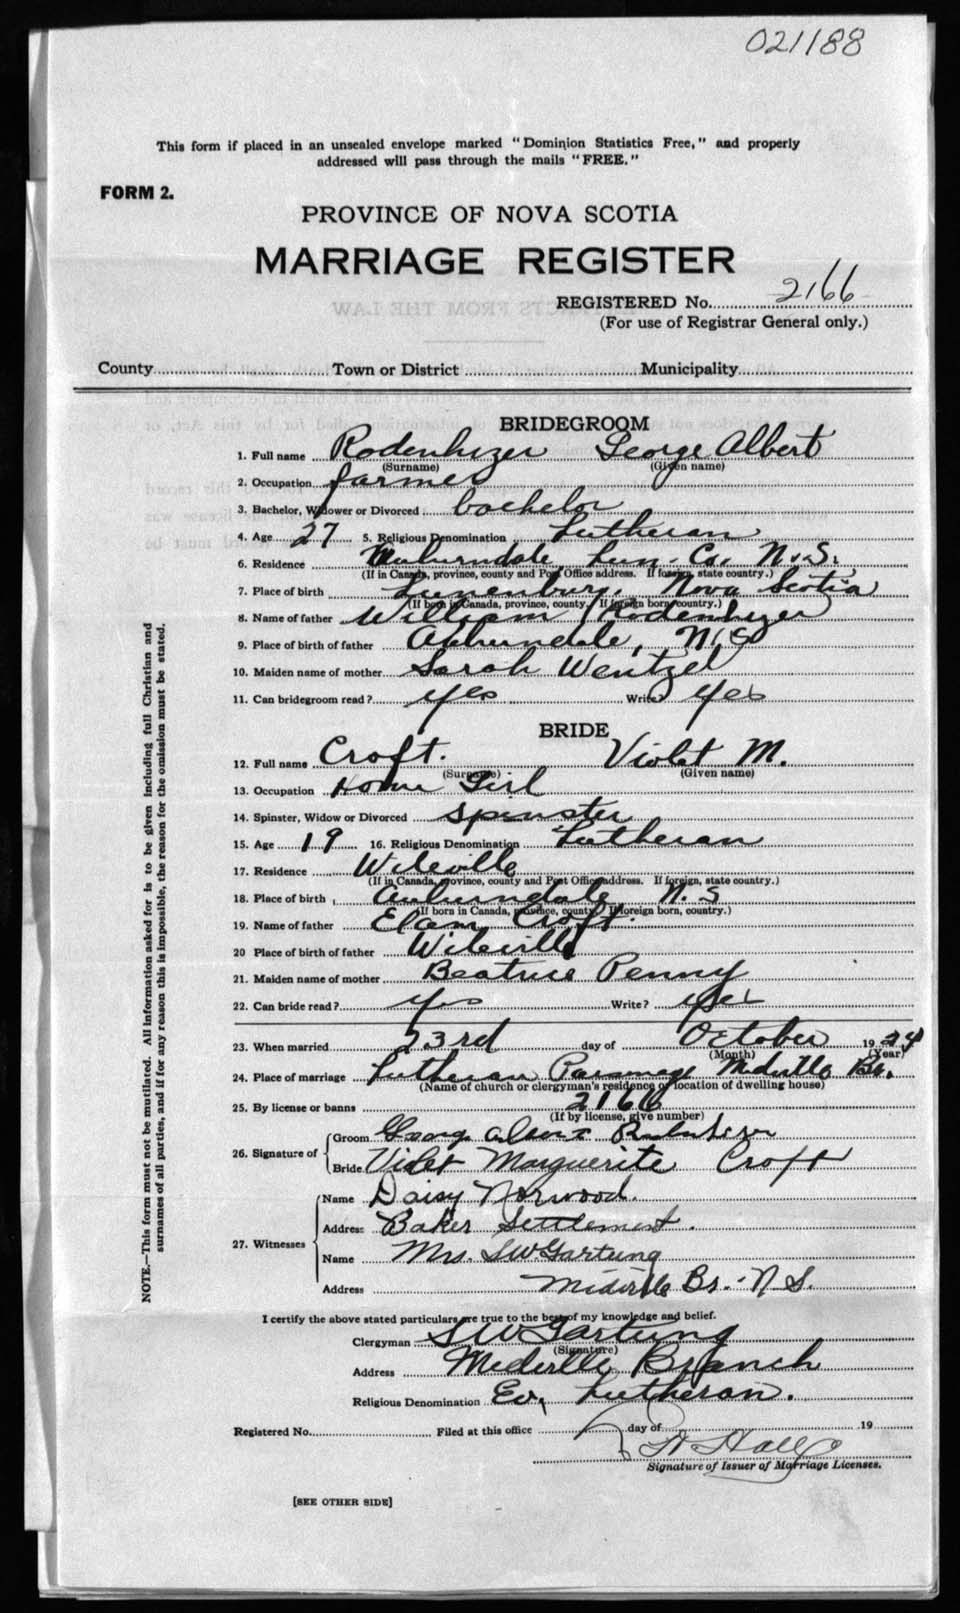 021188
This form if placed in an unsealed envelope marked "Dominion Statistics Free," and properly
addressed will pass through the mails "FREE."
FORM 2.
PROVINCE OF NOVA SCOTIA
MARRIAGE REGISTER
REGISTERED No. 2166
(For use of Registrar General only.)
County Town or District Municipality
BRIDEGROOM
1. Full name Rodenhizer George Albert
(Surname) (Given name)
2. Occupation farmer
3. Bachelor, Widower or Divorced bachelor
4. Age 27 5. Religious Denomination Lutheran
6. Residence Auburndale Lun. Co. N.S.
(If in Canada, province, county and Post Office address. If foreign, state country.)
7. Place of birth Lunenburg, Nova Scotia
(If born in Canada, province, county. If foreign born, country.)
8. Name of father William Rodenhizer
9. Place of birth of father Auburndale, N.S
10. Maiden name of mother Sarah Wentzel
11. Can bridegroom read? yes Write? yes
BRIDE
12. Full name Croft. Violet M.
(Surname) (Given name)
13. Occupation Home Girl
14. Spinster, Widow or Divorced Spinster
15. Age 19 16. Religious Denomination Lutheran
17. Residence Wileville
(If in Canada, province, county and Post Office address. If foreign, state country.)
18. Place of birth Auburndale N.S
(If born in Canada, province, county. If foreign born, country.)
19. Name of father Elam Croft.
20 Place of birth of father Wileville
21. Maiden name of mother Beatrice Penny
22. Can bride read? yes Write? yes
23. When married 23rd day of October 1924
(Month) (Year)
24. Place of marriage Lutheran Parsonage Midville Br.
(Name of church or clergyman's residence or location of dwelling house)
25. By license or banns 2166
(If by license, give number)
26. Signature of
Groom George Albert Rodenhizer
Bride Violet Marguerite Croft
27. Witnesses
Name Daisy Norwood.
Address Baker Settlement.
Name Mrs. S W Gartung
Address Midville Br. N S.
I certify the above stated particulars are true to the best of my knowledge and belief.
Clergyman S W Gartung
(Signature)
Address Midville Branch
Religious Denomination Ev. Lutheran.
Registered No. Filed at this office day of 19
Signature of Issuer of Marriage Licenses.
[SEE OTHER SIDE]
NOTE.—This form must not be mutilated. All information asked for is to be given including full Christian and
surnames of all parties, and if for any reason this is impossible, the reason for the omission must be stated.